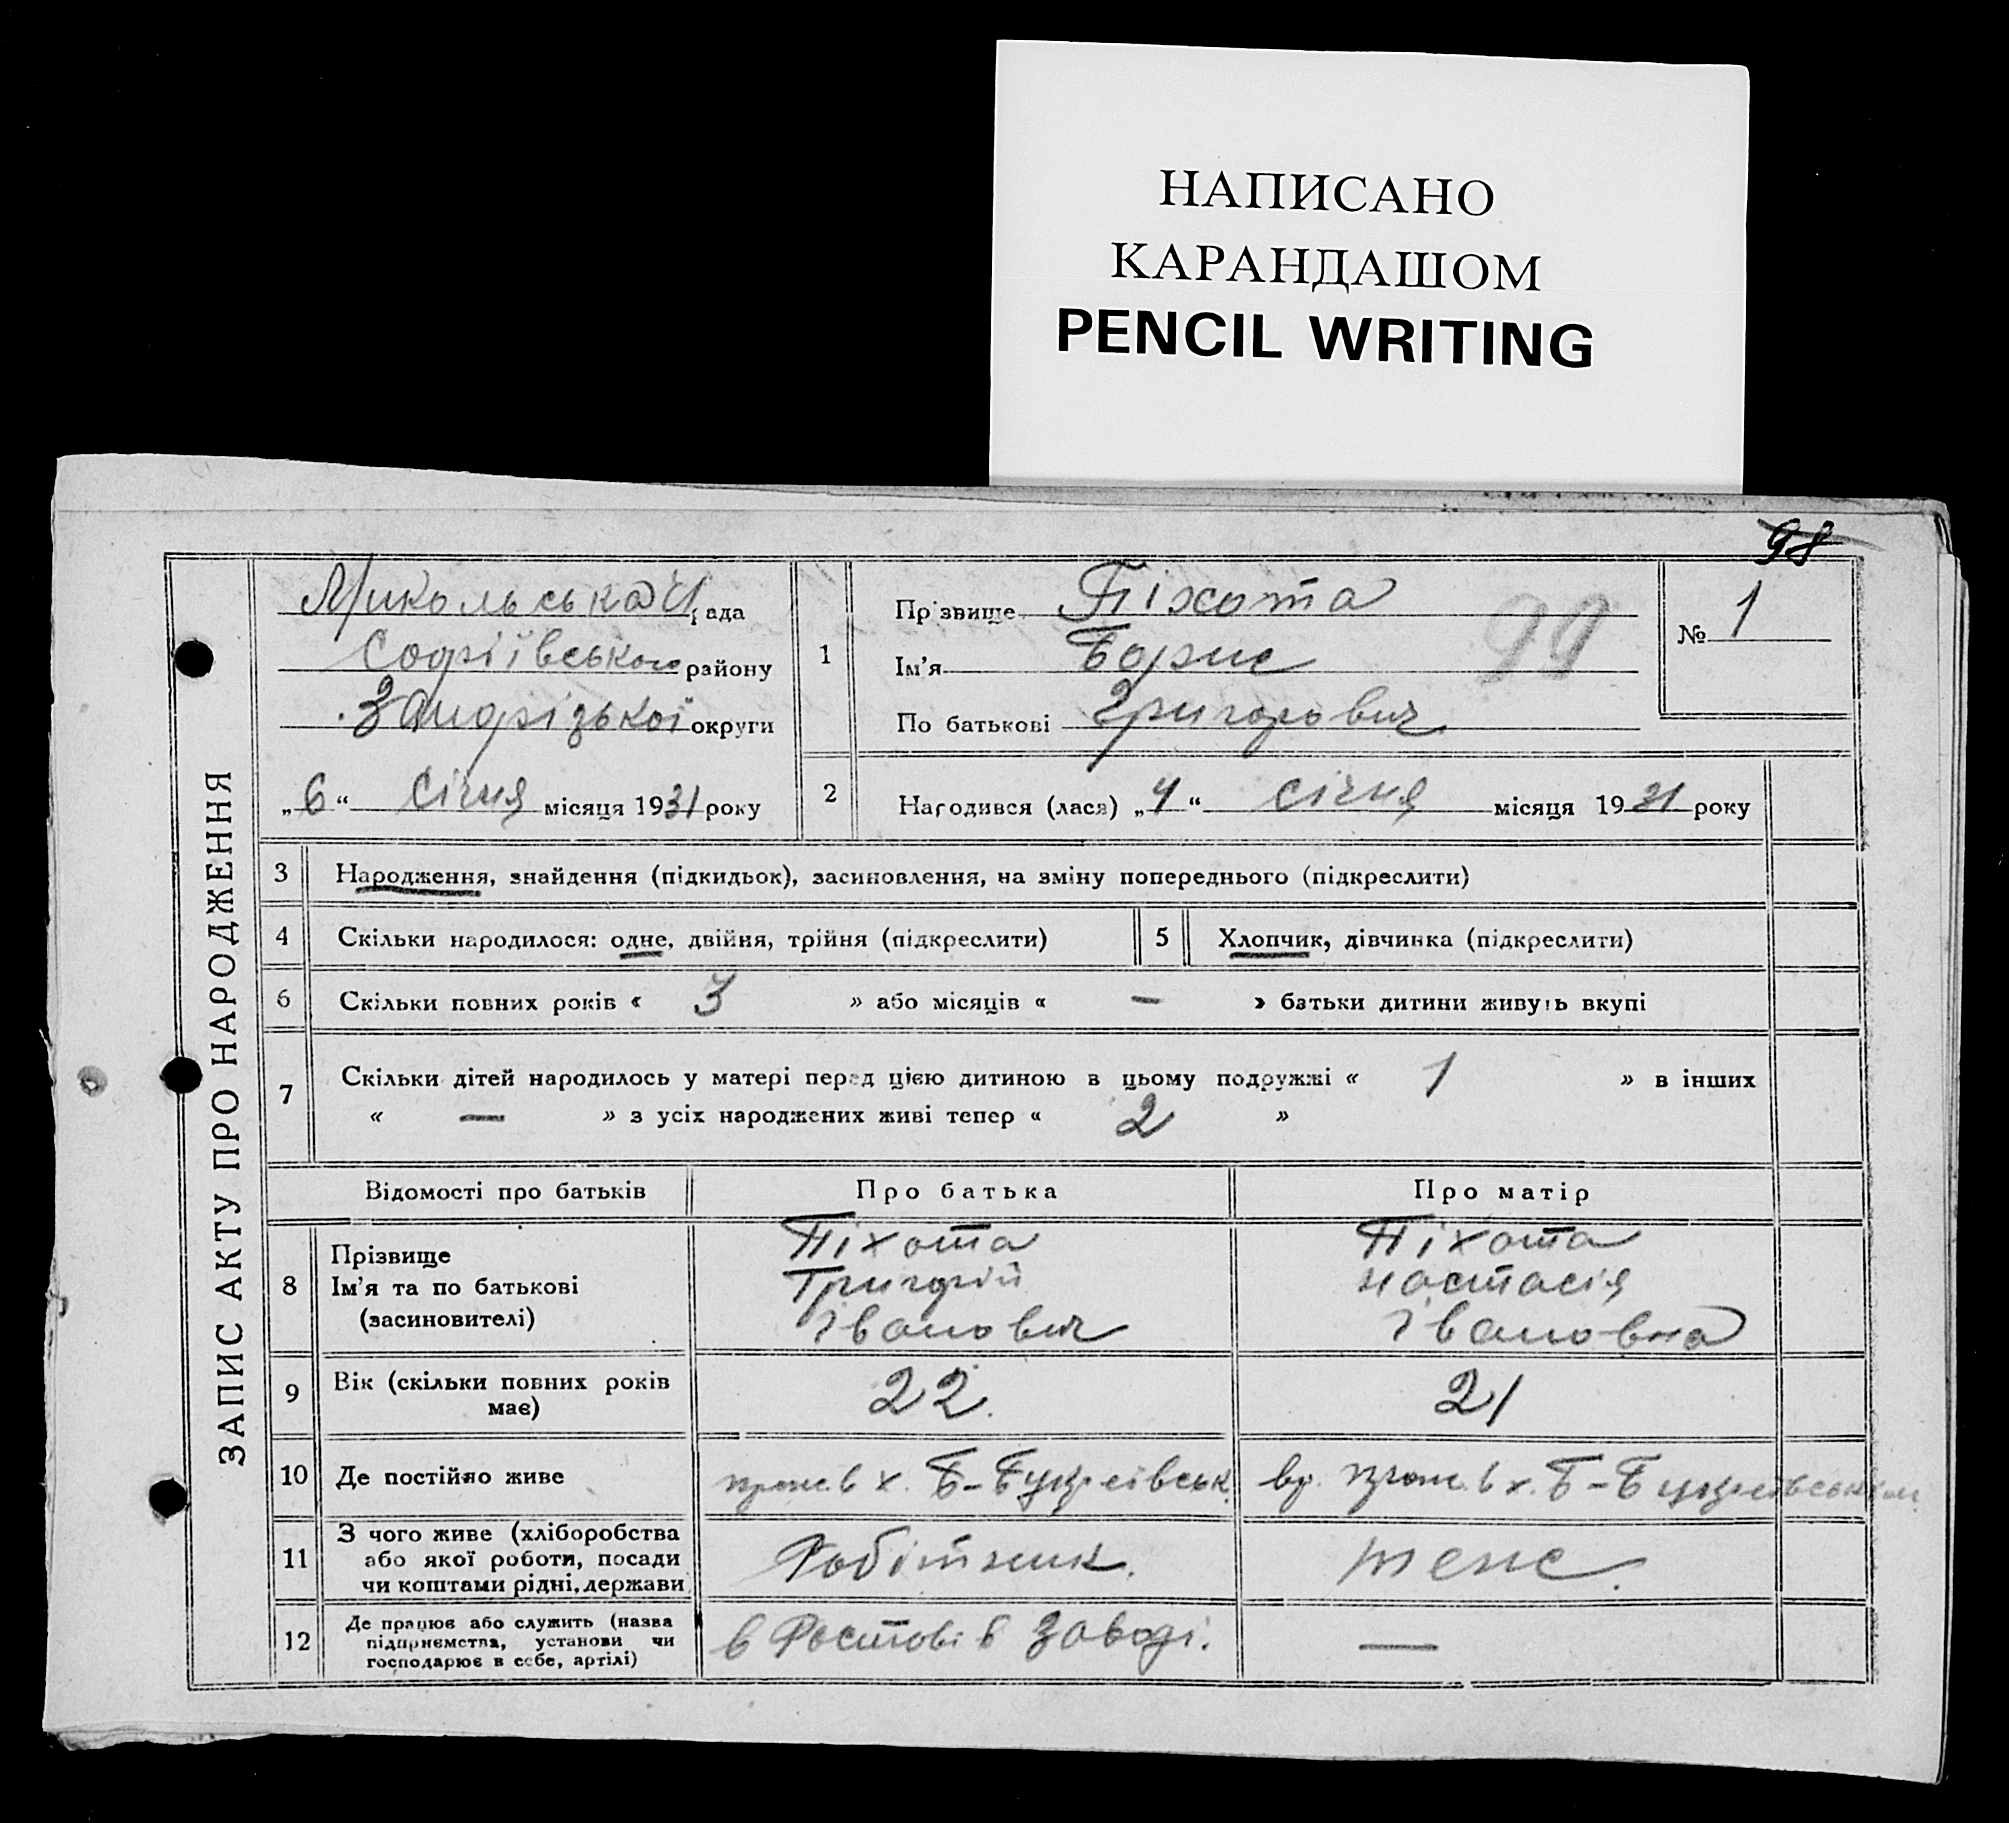 НАПИСАНО
КАРАНДАШОМ
PENCIL WRITING
98
ЗАПИС АКТУ ПРО НАРОДЖЕННЯ
Микольська рада
Софіївського району
Запорізької округи
„6“ Січня місяця 1931 року
1
Прізвище Піхота
Ім'я Борис
По батькові Григорович
99
№ 1
2 Народився (лася) „4“ січня місяця 1931 року
3 Народження, знайдення (підкидьок), засиновлення, на зміну попереднього (підкреслити)
4 Скільки народилося: одне, двійня, трійня (підкреслити) 5 Хлопчик, дівчинка (підкреслити)
6 Скільки повних років « 3 » або місяців « — » батьки дитини живуть вкупі
7 Скільки дітей народилось у матері перед цією дитиною в цьому подружжі « 1 » в інших
« — » з усіх народжених живі тепер « 2 »
Відомості про батьків Про батька Про матір
8 Прізвище
Ім'я та по батькові
(засиновителі)
Піхота
Григорій
Іванович
Піхота
Настасія
Івановна
9 Вік (скільки повних років
має)
22. 21
10 Де постійно живе
прож. в х. Б-Букреївськ. прож. в х. Б-Букреївськім
11 З чого живе (хліборобства
або якої роботи, посади
чи коштами рідні, держави
Робітник.
12 Де працює або служить (назва
підприємства, установи чи
господарює в себе, артілі)
в Ростові в заводі. —